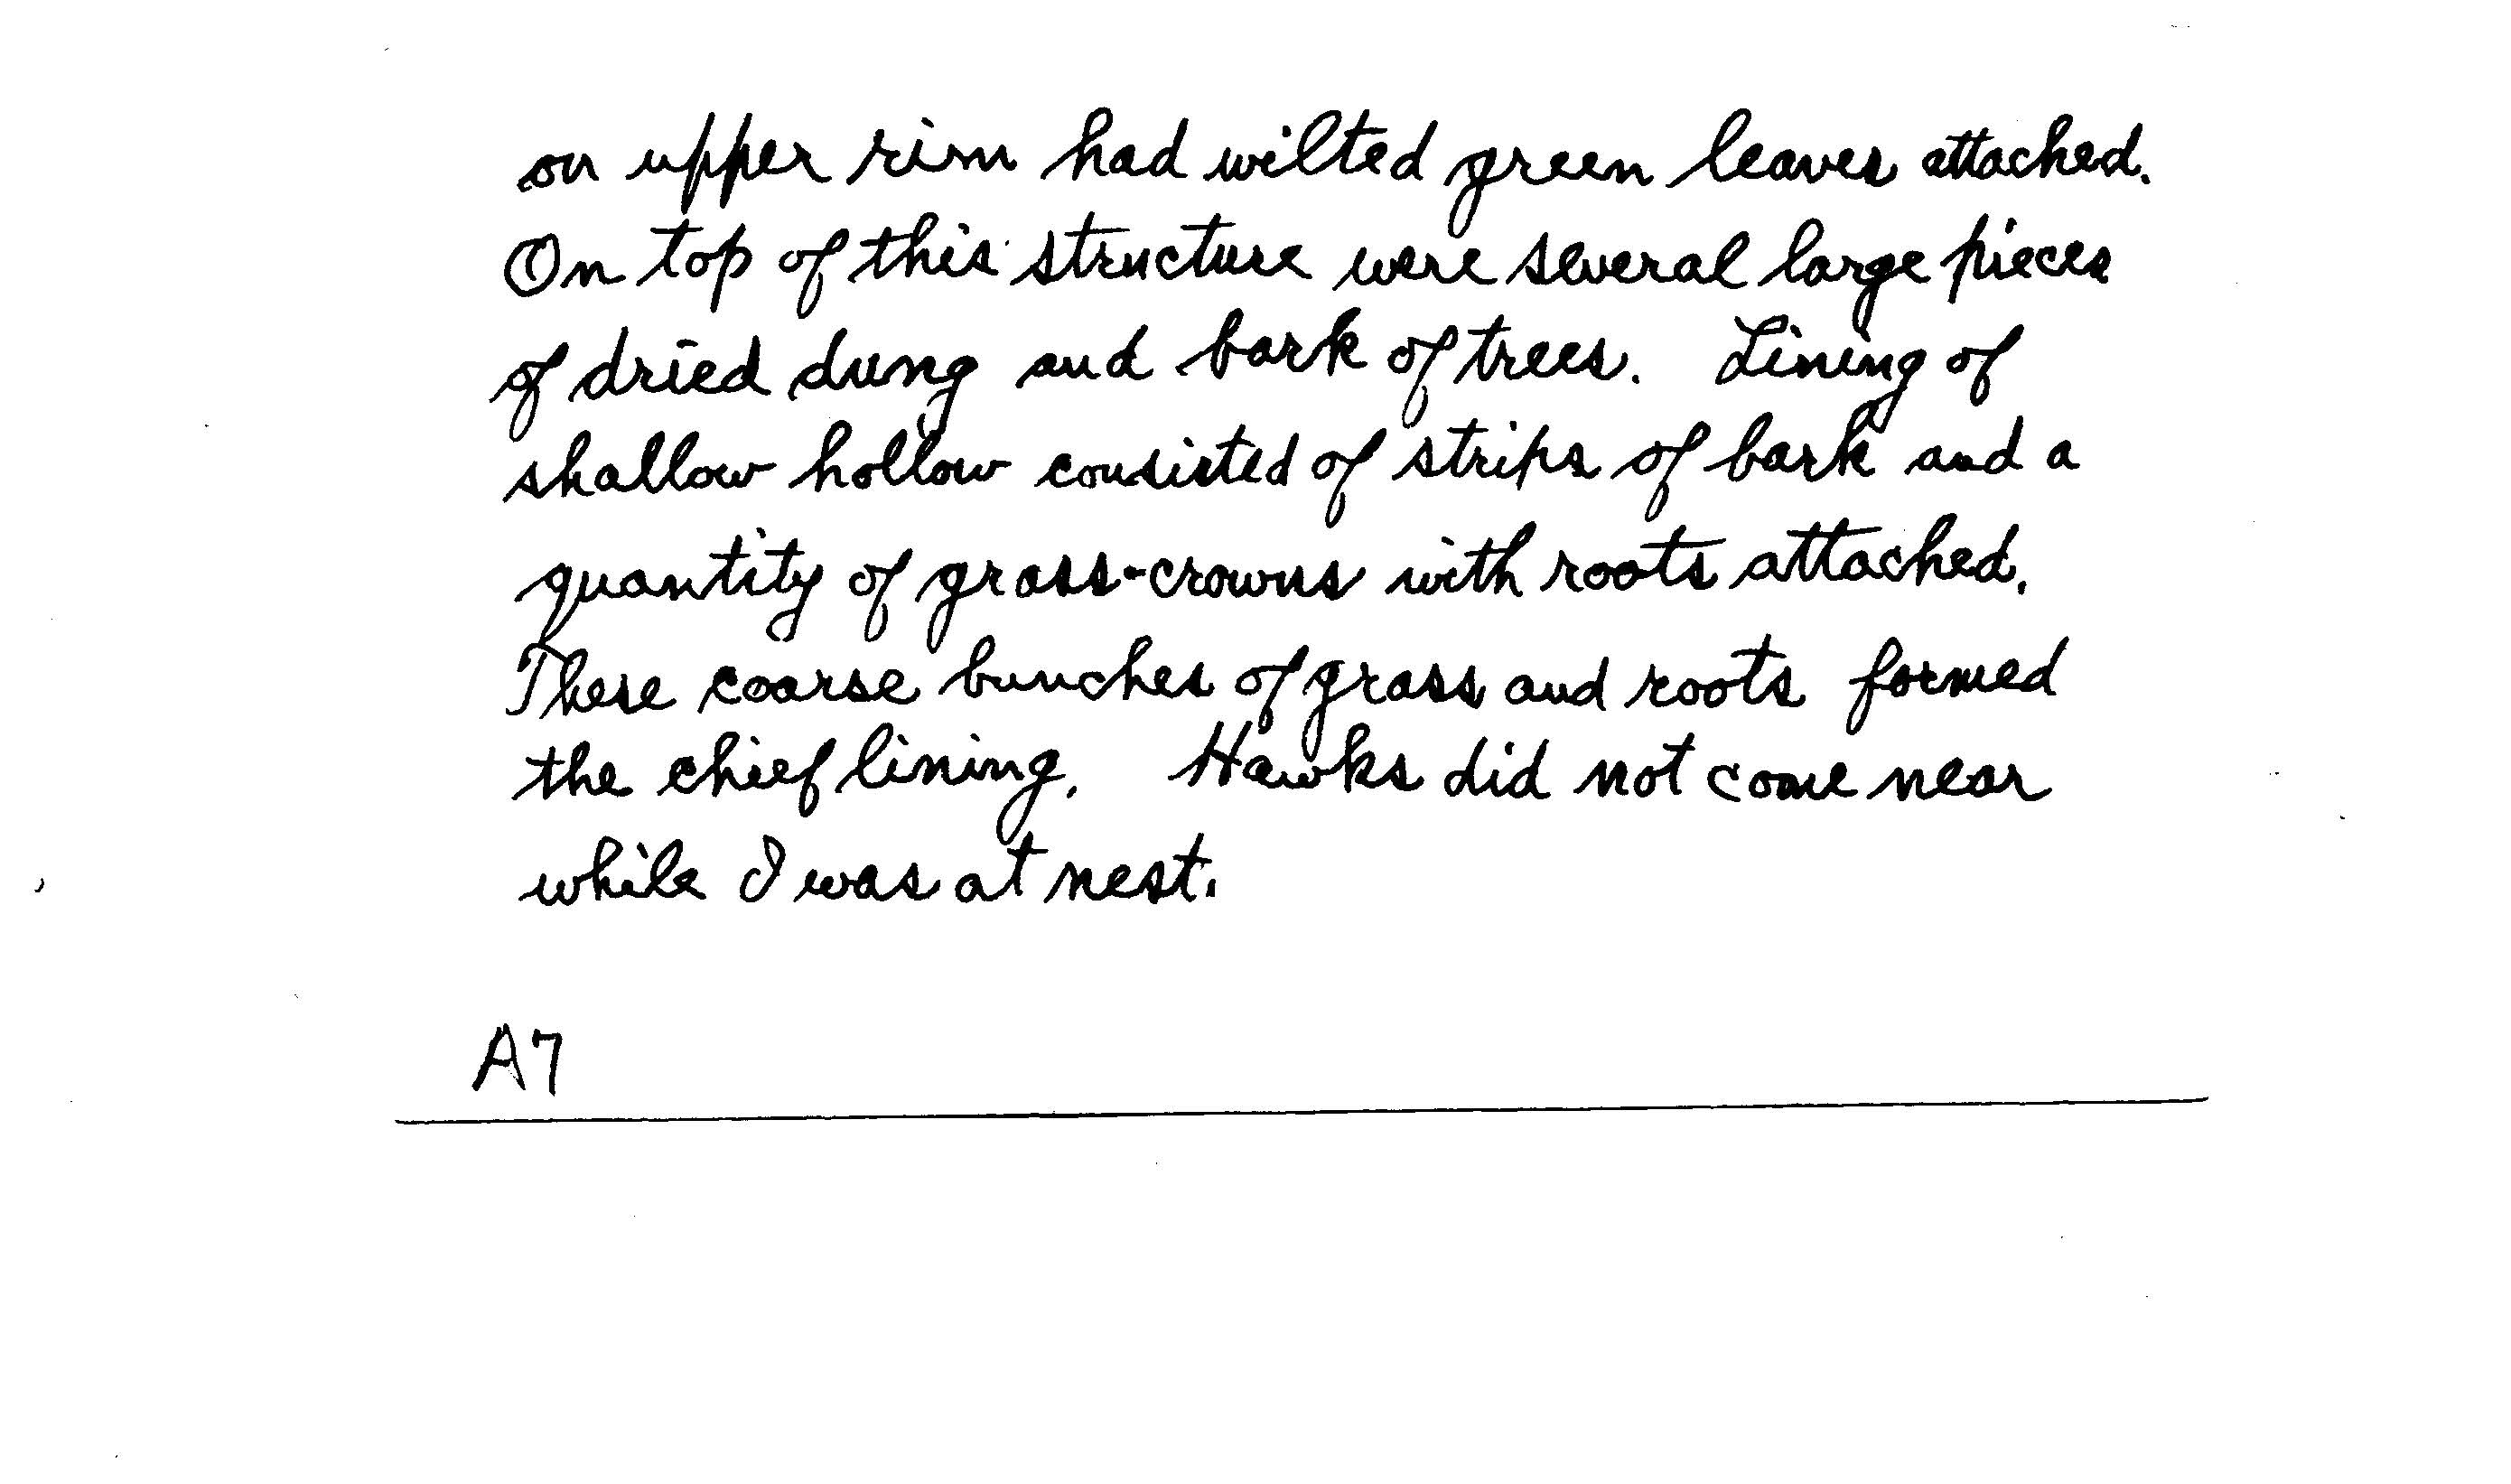 on upper rim had wilted green leaves attached.
On top of this structure were several large pieces
of dried dung and bark of trees. Lining of
shallow hollow consisted of strips of bark and a
quantity of grass-crowns with roots attached.
These coarse bunches of grass and roots formed
the chief lining. Hawks did not come near
while I was at nest.
A7